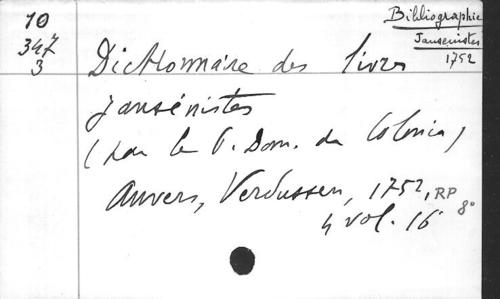 10
347
3
Bibliographie
Jansénistes
1752
Dictionnaire des livres
jansénistes
(par le P. Dom. de Colonia)
Anvers, Verdussen, 1752, RP
4 vol. 16° 8°